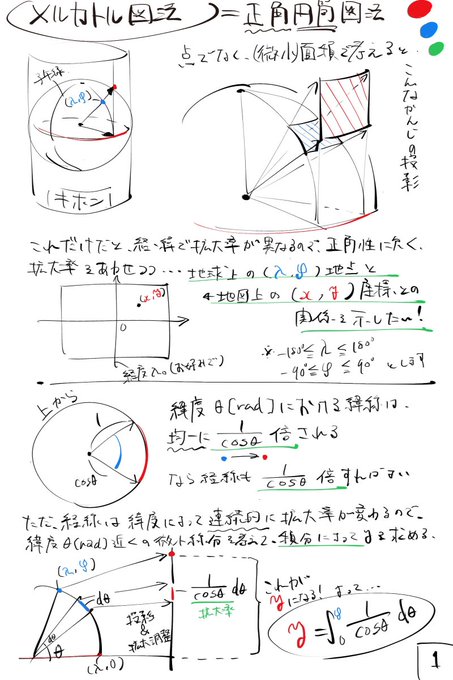 メルカトル図法 = 正角円筒図法
点でなく、(微小)面積で考えると、
こんなかんじの投影
(λ,φ)
(キホン)
これだけだと、経・緯で拡大率が異なるので、正角性に欠く。
拡大率をあわせつつ…地球上の(λ,φ)地点と
地図上の(x,y)座標との
関係を示したい!
(x,y)
0
経度λ₀(お好みで)
※ -180°≦λ≦180°
-90°≦φ≦90° とします
上から
1
cosθ
緯度θ[rad]における緯線は、
均一に 1/cosθ 倍される
なら経線も 1/cosθ 倍すればよい
ただ、経線は緯度によって連続的に拡大率が変わるので、
緯度θ[rad]近くの微小線分を考えて、積分によってyを求める。
(λ,φ)
dθ
dθ
θ
(λ,0)
投影&拡大調整
1/cosθ dθ
拡大率
これがyになる!よって…
y=∫₀^φ 1/cosθ dθ
1